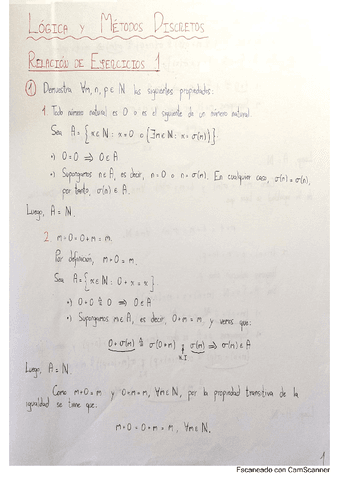 LÓGICA Y MÉTODOS DISCRETOS
RELACIÓN DE EJERCICIOS 1
① Demuestra ∀m, n, p ∈ ℕ las siguientes propiedades:
1. Todo número natural es 0 o es el siguiente de un número natural.
Sea A = {x ∈ ℕ : x = 0 ó (∃m ∈ ℕ : x = σ(m))}.
•) 0 = 0 ⇒ 0 ∈ A
•) Supongamos n ∈ A, es decir, n = 0 o n = σ(m). En cualquier caso, σ(n) = σ(n),
por tanto, σ(n) ∈ A.
Luego, A = ℕ.
2. m + 0 = 0 + m = m.
Por definición, m + 0 = m.
Sea A = {x ∈ ℕ : 0 + x = x}
•) 0 + 0 = 0 ⇒ 0 ∈ A
•) Supongamos m ∈ A, es decir, 0 + m = m, y veamos que:
0 + σ(m) = σ(0 + m) = σ(m) ⇒ σ(m) ∈ A
H.I
Luego, A = ℕ.
Como m + 0 = m y 0 + m = m, ∀m ∈ ℕ, por la propiedad transitiva de la
igualdad se tiene que:
m + 0 = 0 + m = m, ∀m ∈ ℕ.
1
Escaneado con CamScanner